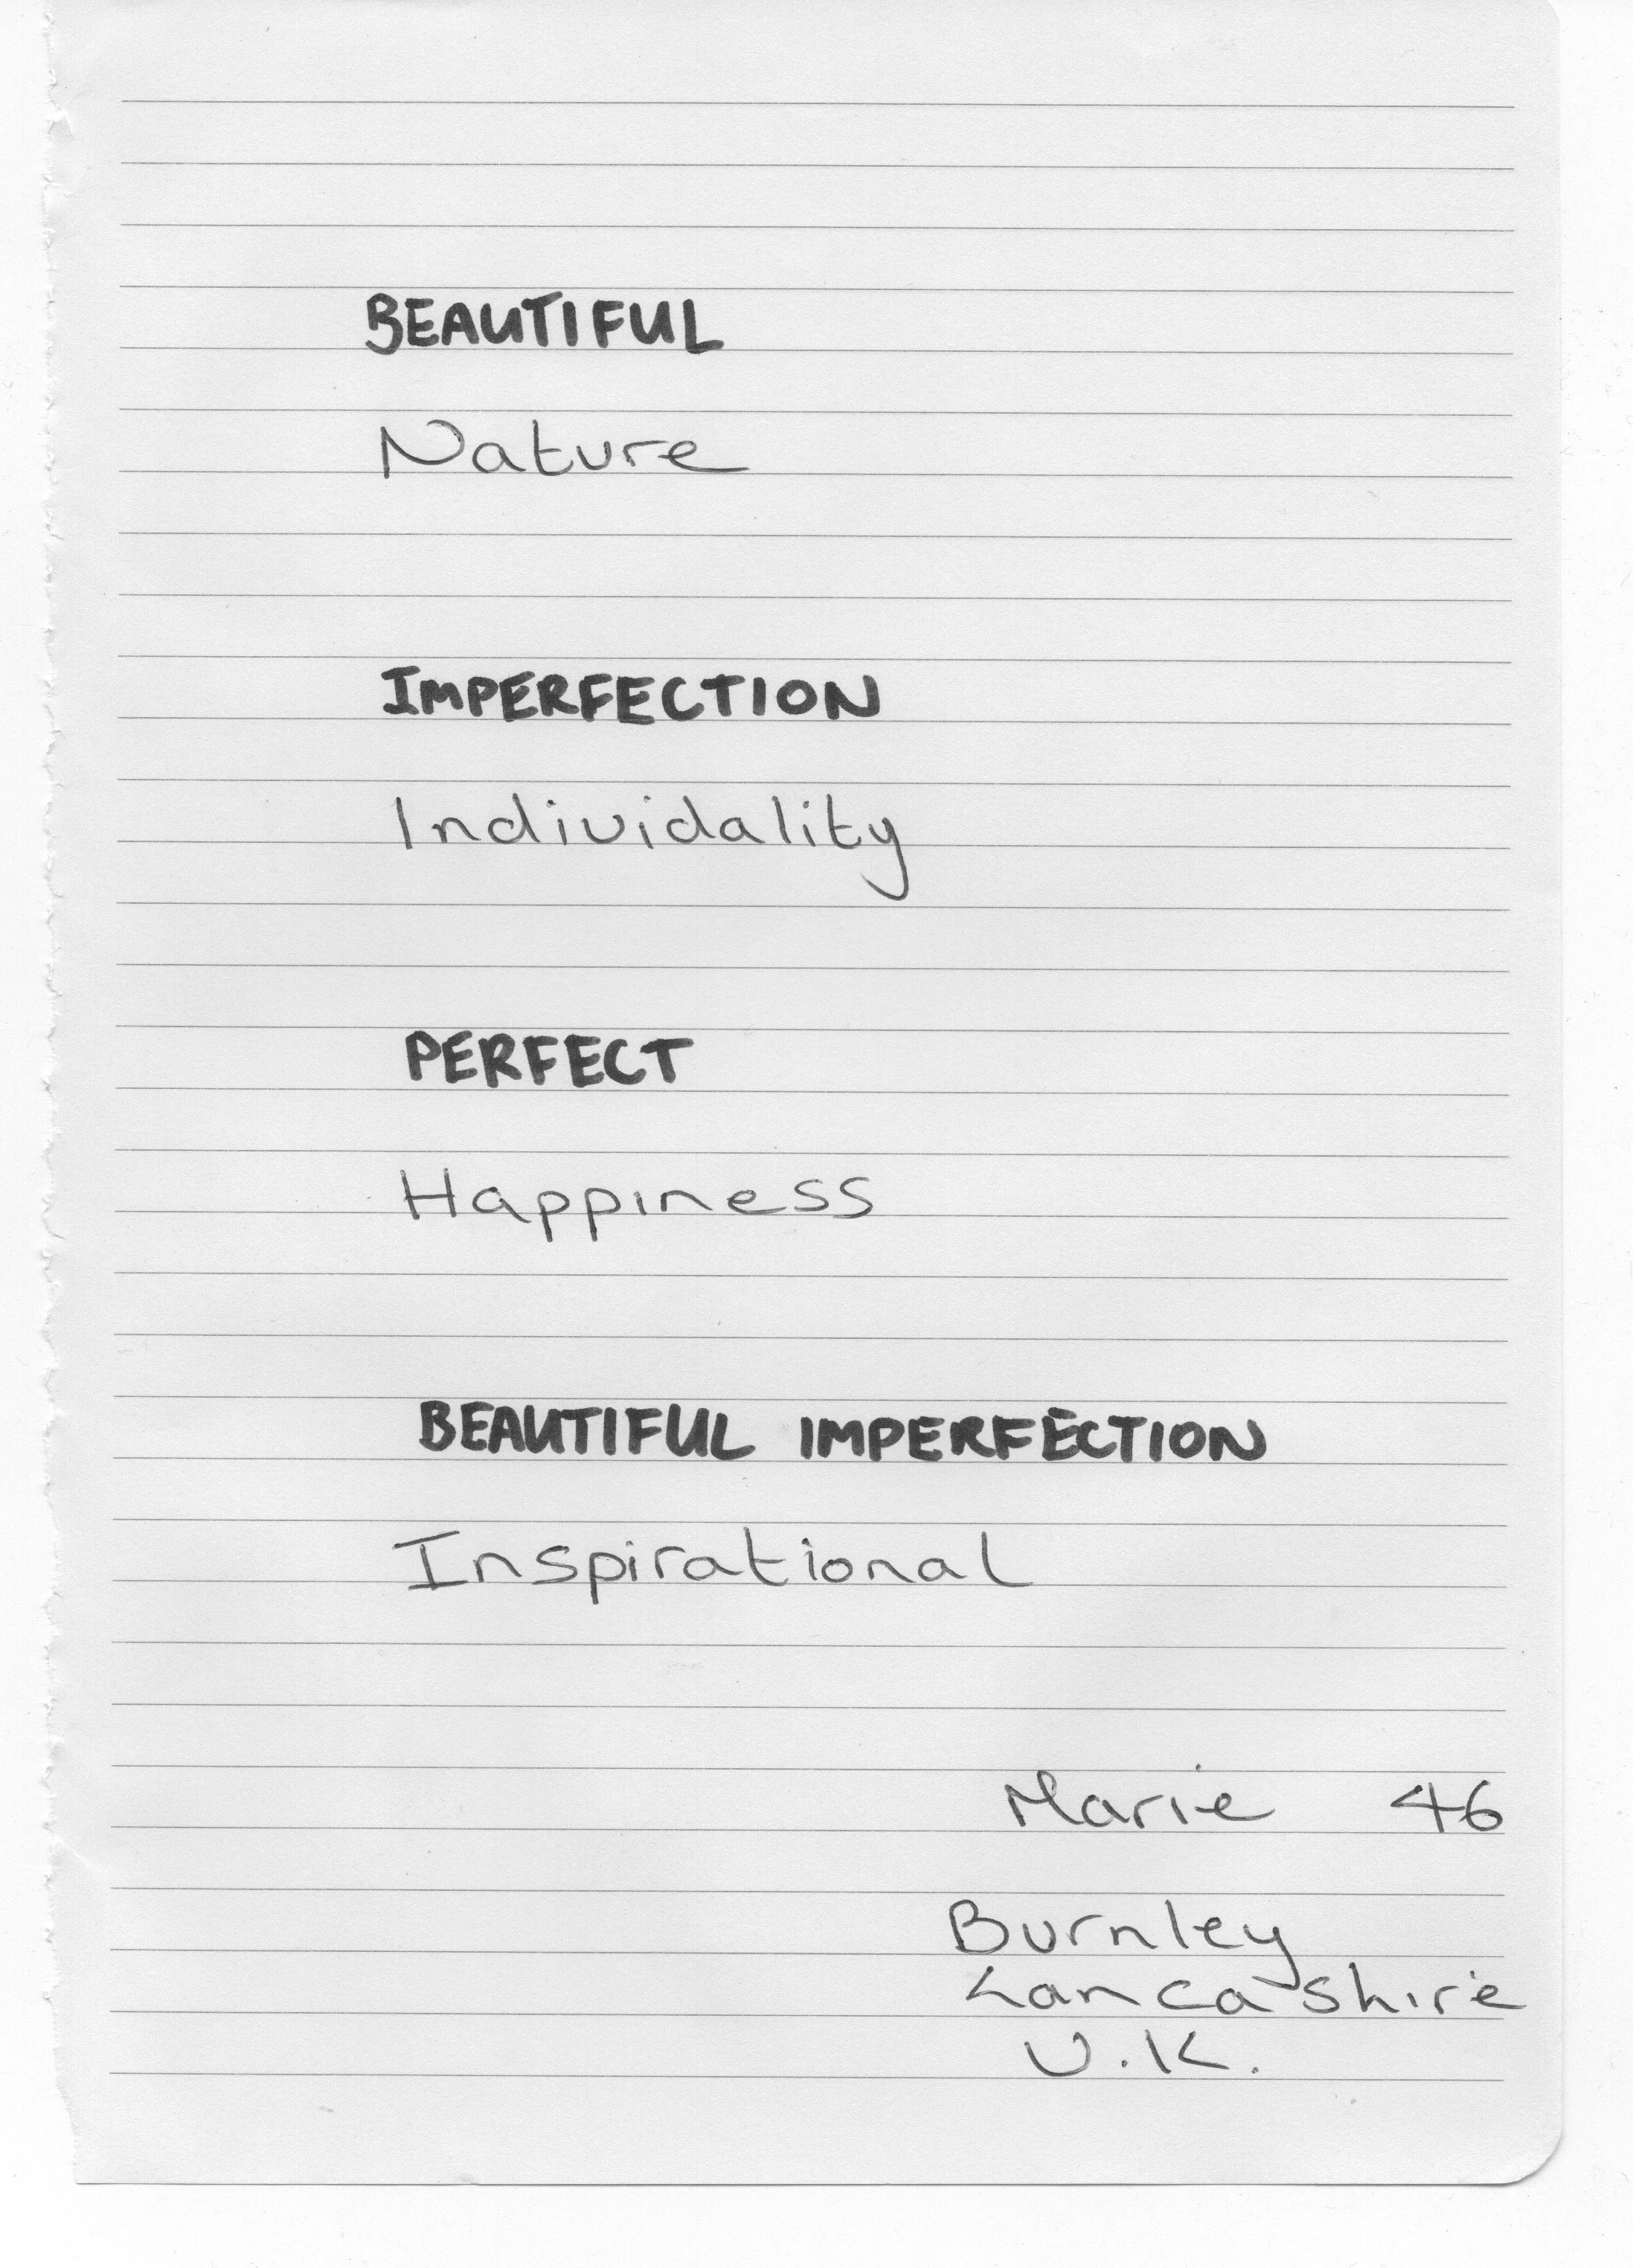 BEAUTIFUL
Nature
IMPERFECTION
Individality
PERFECT
Happiness
BEAUTIFUL IMPERFECTION
Inspirational
Marie 46
Burnley
Lancashire
U.K.